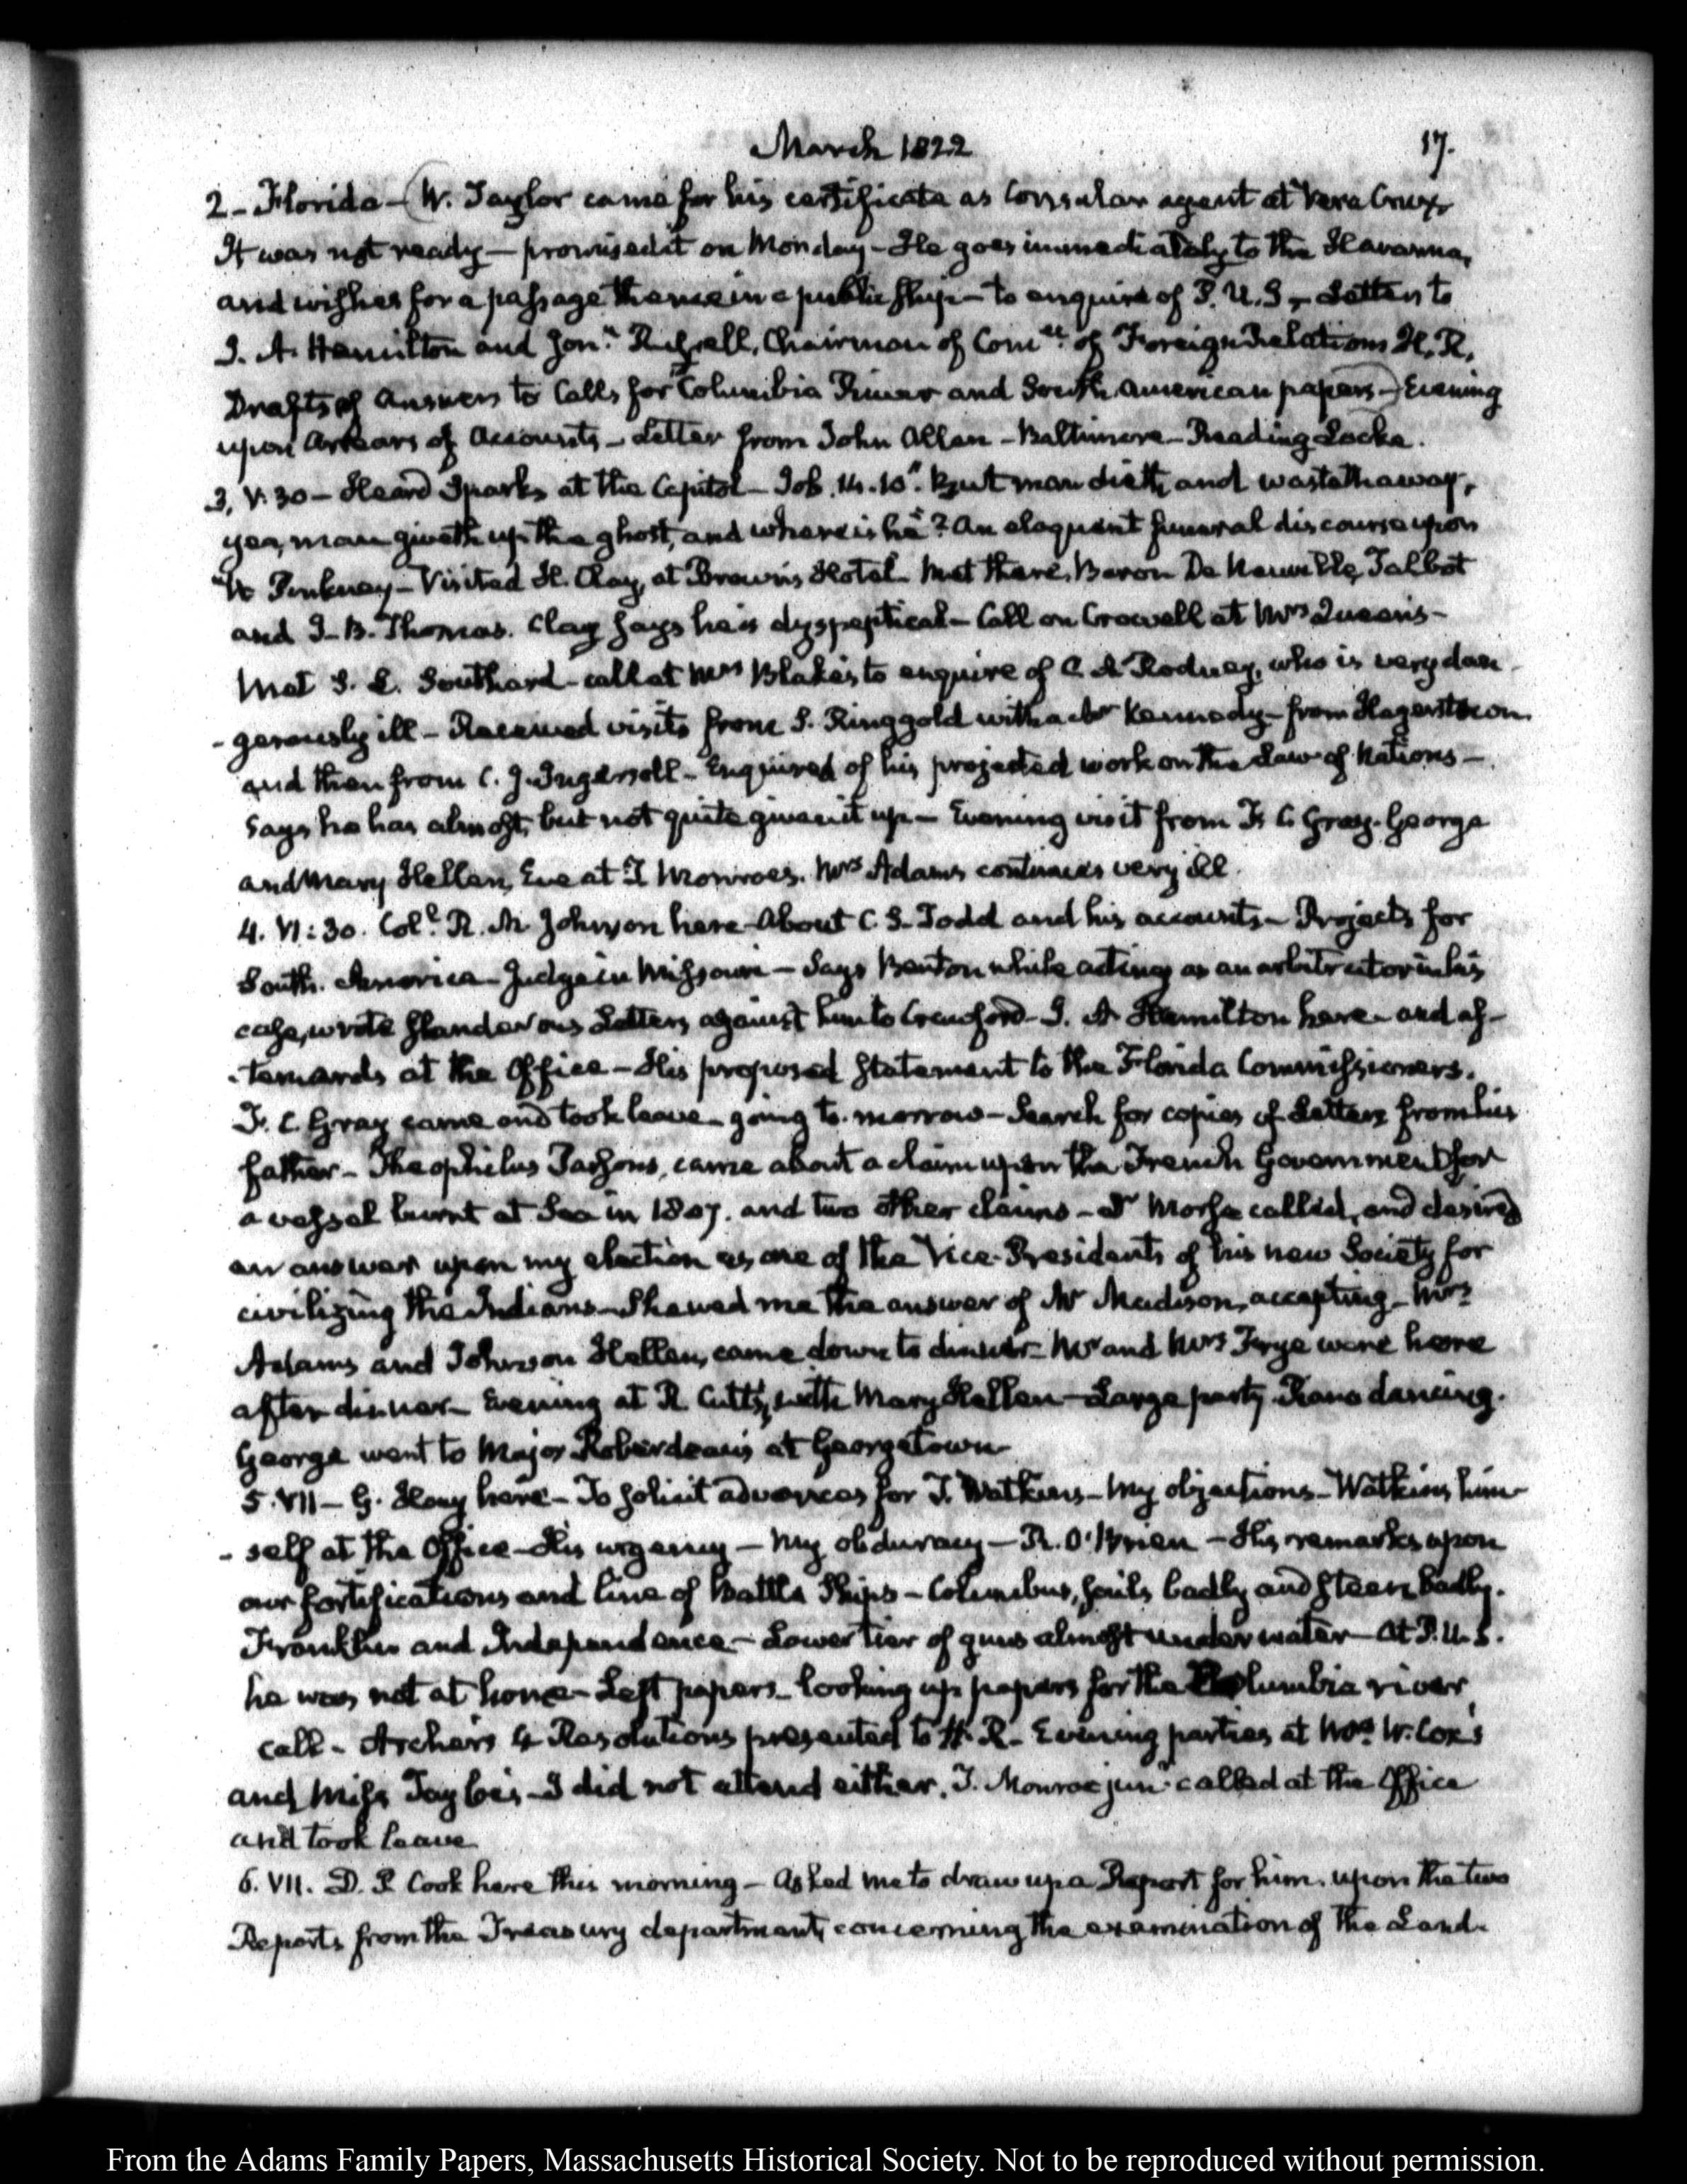 March 1822
17.
2 - Florida - (W. Taylor came for his certificate as Consular agent at Vera Cruz,
It was not ready — promised it on Monday - He goes immediately to the Havanna,
and wishes for a passage thence in a public ship - to enquire of P. U. S. - Letters to
J. A. Hamilton and Jonn. Russell, Chairman of Comee. of Foreign Relations H. R.
Drafts of Answers to Calls for Columbia River and South American papers -) Evening
upon Arrears of Accounts - Letter from John Allan - Baltimore - Reading Locke.
3. V:30 - Heard Sparks at the Capitol - Job. 14.10. "But man dieth, and wasteth away,
yea, man giveth up the ghost, and where is he"? An eloquent funeral discourse upon
W Pinkney - Visited H. Clay, at Brown's Hotel. Met there, Baron De Neuville, Talbot
and J. B. Thomas. Clay says he is dyspeptical - Call on Crowell at Mrs Queen's -
Met S. L. Southard - call at Mrs Blake's to enquire of C. A Rodney, who is very dan
- gerously ill - Received visits from S. Ringgold with a Mr Kennedy - from Hagerstown
and then from C. J. Ingersoll - Enquired of his projected work on the Law of Nations -
says he has almost, but not quite given it up - Evening visit from F. C. Gray. George
and Mary Hellen, Eve at J Monroe's. Mrs Adams continues very ill.
4. VI:30. Coll. R. M. Johnson here - About C. S. Todd and his accounts - Projects for
South. America - Judge in Missouri - Says Benton while acting as an arbitrator in his
case, wrote slanderous Letters against him to Crawford - J. A Hamilton here - and af-
- terwards at the Office - His proposed Statement to the Florida Commissioners.
F. C. Gray came and took leave - going to-morrow - Search for copies of Letters from his
father - Theophilus Parsons, came about a claim upon the French Government for
a vessel burnt at Sea in 1807. and two other claims - Dr Morse called, and desired
an answer upon my election as one of the Vice-Presidents of his new Society for
civilizing the Indians - Shewed me the answer of Mr Madison, accepting - Mrs
Adams and Johnson Hellen, came down to dinner - Mr and Mrs Frye were here
after dinner - Evening at R. Cutts's, with Mary Hellen - Large party. Piano dancing.
George went to Major Roberdeau's at Georgetown
5. VII - G. Hay here - To solicit advances for T. Watkins - My objections - Watkins him-
- self at the Office - His urgency - My obduracy - R. O'Brien - His remarks upon
our fortifications and line of Battle Ships - Columbus, sails badly and steers badly.
Franklin and Independence - Lower tier of guns almost under water - At P. U. S.
he was not at home - Left papers - looking up papers for the Columbia river
call - Archer's 4 Resolutions presented to H. R - Evening parties at Mrs W. Cox's
and Miss Tayloe's - I did not attend either. J. Monroe junr. called at the Office
and took leave
6. VII. D. P Cook here this morning - asked me to draw up a Report for him. upon the two
Reports from the Treasury department, concerning the examination of the Land-
From the Adams Family Papers, Massachusetts Historical Society. Not to be reproduced without permission.